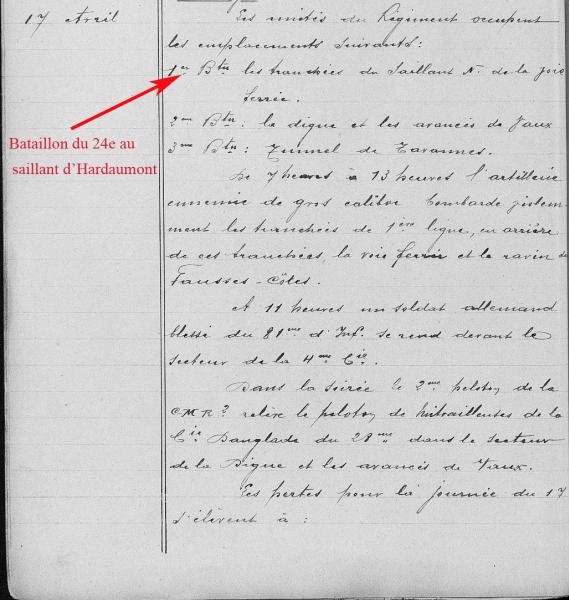 17 Avril
Les unités du Régiment occupent
les emplacements suivants :
1er Btn les tranchées du Saillant N. de la voie
ferrée.
2me Btn : la digue et les avancés de Vaux
3me Btn : Tunnel de Tavannes.
Bataillon du 24e au
saillant d'Hardaumont
De 7 heures à 13 heures l'artillerie
ennemie de gros calibre bombarde
ment les tranchées de 1ère ligne, en arrière
de ces tranchées, la voie ferrée et le ravin des
Fausses-Côtes.
A 11 heures un soldat allemand
blessé du 81me d'Inf. se rend devant le
secteur de la 4me Cie.
Dans la soirée le 2me peloton de la
CMR2 relève le peloton de mitrailleuses de la
Cie Danglade du 28me dans le secteur
de la Digue et les avancés de Vaux.
Les pertes pour la journée du 17
s'élèvent à :